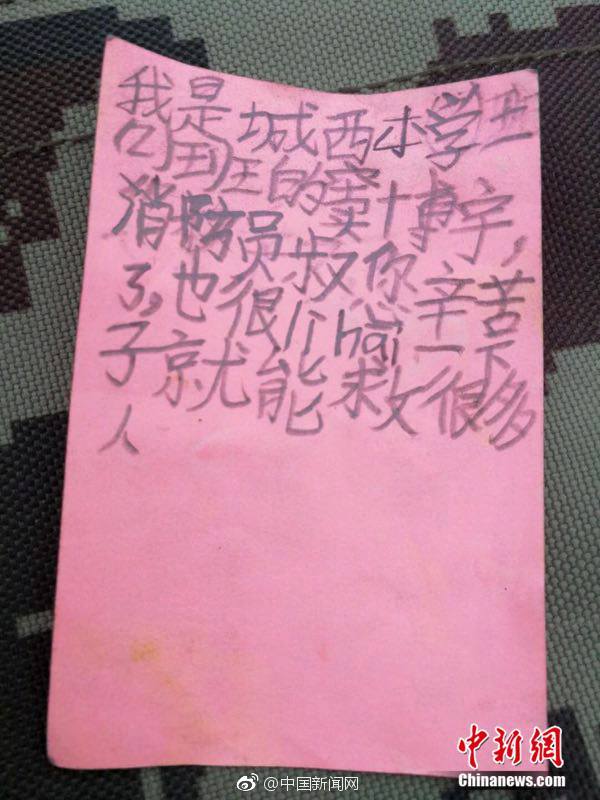 我是城西小学二
班的窦博宇,
消防员叔你辛苦
了,也很li hai一下
子就能救很多
人
@中国新闻网
中新網
Chinanews.com